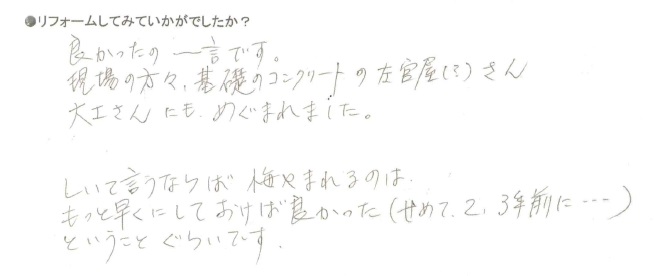 ●リフォームしてみていかがでしたか？
良かったの一言です。
現場の方々、基礎のコンクリートの左官屋(?)さん
大工さんにも、めぐまれました。
しいて言うならば悔やまれるのは、
もっと早くにしておけば良かった(せめて、2、3年前に…)
ということぐらいです。